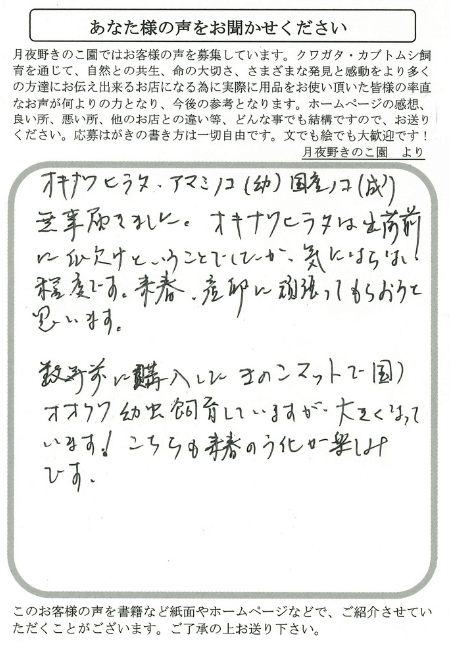 あなた様の声をお聞かせください
月夜野きのこ園ではお客様の声を募集しています。クワガタ・カブトムシ飼
育を通じて、自然との共生、命の大切さ、さまざまな発見と感動をより多く
の方達にお伝え出来るお店になる為に実際に用品をお使い頂いた皆様の率直
なお声が何よりの力となり、今後の参考となります。ホームページの感想、
良い所、悪い所、他のお店との違い等、どんな事でも結構ですので、お送り
ください。応募はがきの書き方は一切自由です。文でも絵でも大歓迎です！
月夜野きのこ園　より
オキナワヒラタ、アマミノコ(幼)国産ノコ(成)
無事届きました。オキナワヒラタは出荷前
に爪欠けということでしたが、気にならない
程度です。来春、産卵に頑張ってもらおうと
思います。
数ヶ月前に購入したきのこマットで国
オオクワ幼虫飼育していますが、大きくなって
います！こちらも来春のう化が楽しみ
です。
このお客様の声を書籍など紙面やホームページなどで、ご紹介させてい
ただくことがございます。ご了承の上お送り下さい。